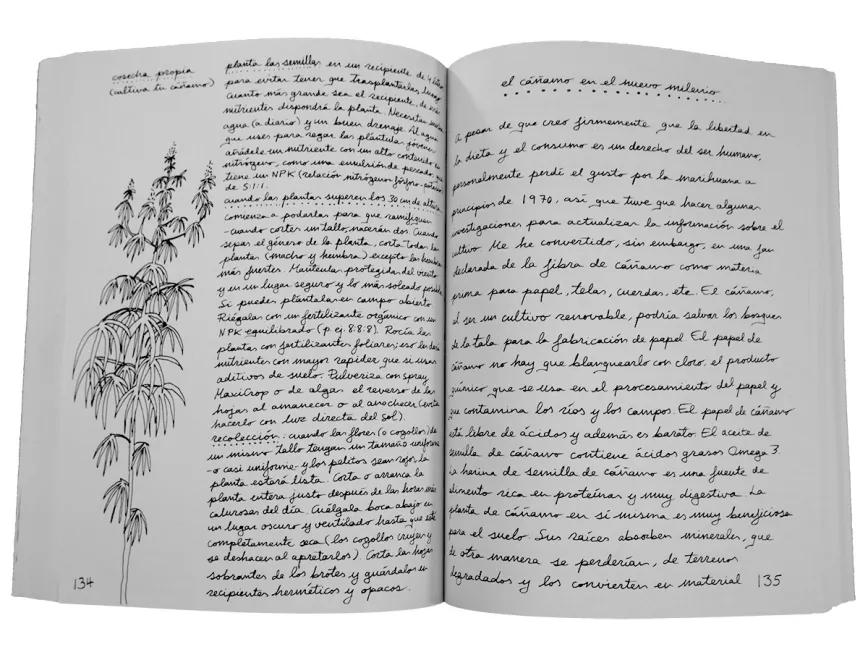 cosecha propia
(cultiva tu cáñamo)
planta las semillas en un recipiente de 4 litros
para evitar tener que trasplantarlas luego
Cuanto más grande sea el recipiente, de más
nutrientes dispondrá la planta. Necesitan
agua (a diario) y un buen drenaje. Al agua
que uses para regar las plántulas jóvenes
añádele un nutriente con un alto contenido en
nitrógeno, como una emulsión de pescado, que
tiene un NPK (relación nitrógeno-fósforo-potasio)
de 5:1:1.
cuando las plantas superen los 30 cm de altura
comienza a podarlas para que ramifiquen
-cuando cortes un tallo, nacerán dos. Cuando
sepas el género de la planta, corta todas las
plantas (macho y hembra) excepto las hembras
más fuertes. Mantenlas protegidas del viento
y en un lugar seguro y lo más soleado posible
Si puedes plántalas en campo abierto.
Riégalas con un fertilizante orgánico con un
NPK equilibrado (p. ej. 8:8:8). Rocía las
plantas con fertilizantes foliares; eso les dará
nutrientes con mayor rapidez que si usas
aditivos de suelo. Pulveriza con spray
MaxiCrop o de algas el reverso de las
hojas al amanecer o al anochecer (evita
hacerlo con luz directa del sol).
recolección: cuando las flores (o cogollos) de
un mismo tallo tengan un tamaño uniforme
-o casi uniforme- y los pelitos sean rojos, la
planta estará lista. Corta o arranca la
planta entera justo después de las horas más
calurosas del día. Cuélgala boca abajo en
un lugar oscuro y ventilado hasta que esté
completamente seca (los cogollos crujen y
se deshacen al apretarlos). Corta las hojas
sobrantes de los brotes y guárdalos en
recipientes herméticos y opacos.
134
el cáñamo en el nuevo milenio
A pesar de que creo firmemente que la libertad en
la dieta y el consumo es un derecho del ser humano,
personalmente perdí el gusto por la marihuana a
principios de 1970, así que tuve que hacer algunas
investigaciones para actualizar la información sobre el
cultivo. Me he convertido, sin embargo, en una fan
declarada de la fibra de cáñamo como materia
prima para papel, telas, cuerdas, etc. El cáñamo,
al ser un cultivo renovable, podría salvar los bosques
de la tala para la fabricación de papel. El papel de
cáñamo no hay que blanquearlo con cloro, el producto
químico que se usa en el procesamiento del papel y
que contamina los ríos y los campos. El papel de cáñamo
está libre de ácidos y además es barato. El aceite de
semilla de cáñamo contiene ácidos grasos Omega 3.
La harina de semilla de cáñamo es una fuente de
alimento rica en proteínas y muy digestiva. La
planta de cáñamo en sí misma es muy beneficiosa
para el suelo. Sus raíces absorben minerales, que
de otra manera se perderían, de terrenos
degradados y los convierten en material
135